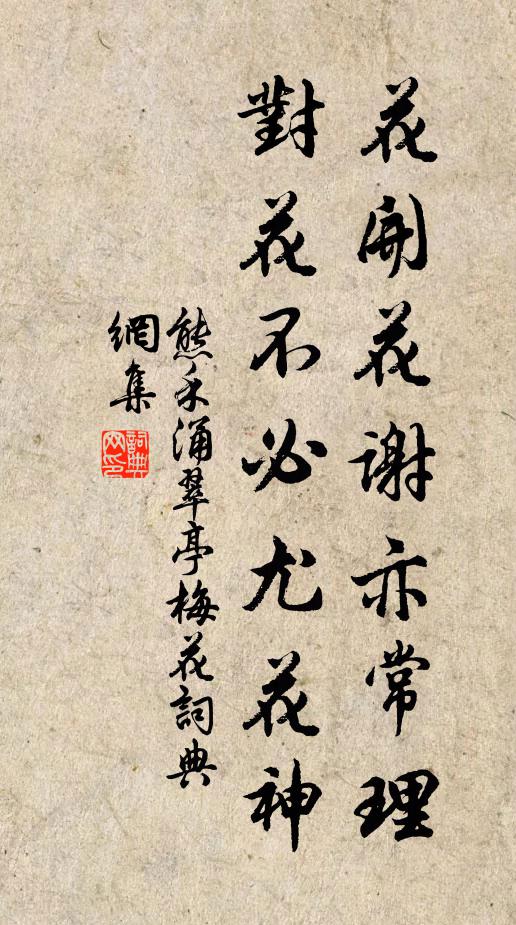 花開花謝亦常理
對花不必尤花神
熊禾涌翠亭梅花詞典
網集
詞典网印